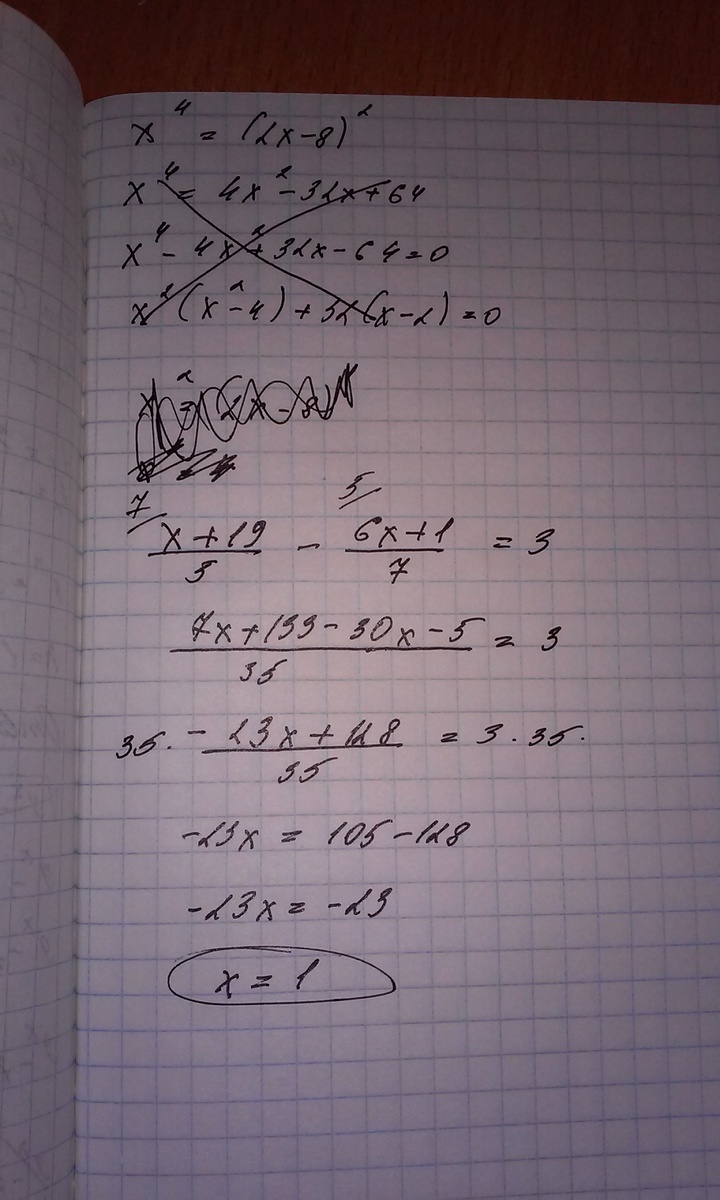 x⁴ = (2x-8)²
x⁴ = 4x² - 32x + 64
x⁴ - 4x² + 32x - 64 = 0
x²(x² - 4) + 32(x - 2) = 0
7 5
(x + 19)/5 - (6x + 1)/7 = 3
(7x + 133 - 30x - 5)/35 = 3
35 · (-23x + 128)/35 = 3 · 35 ·
-23x = 105 - 128
-23x = -23
x = 1